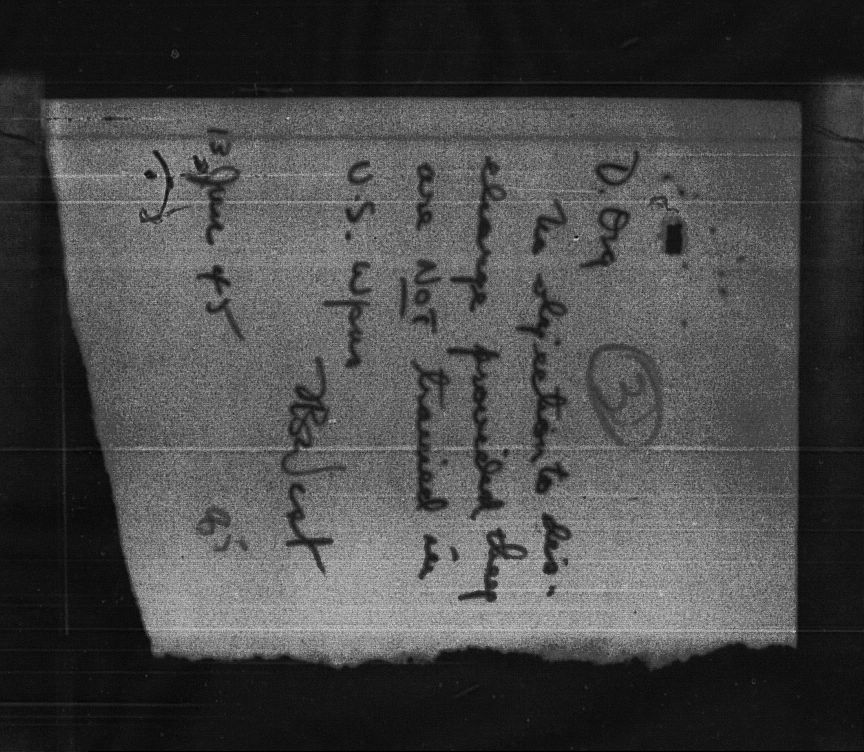 D. Org
3
No objection to dis-
charge provided they
are NOT trained in
U.S. Wpns
13 June 45
85